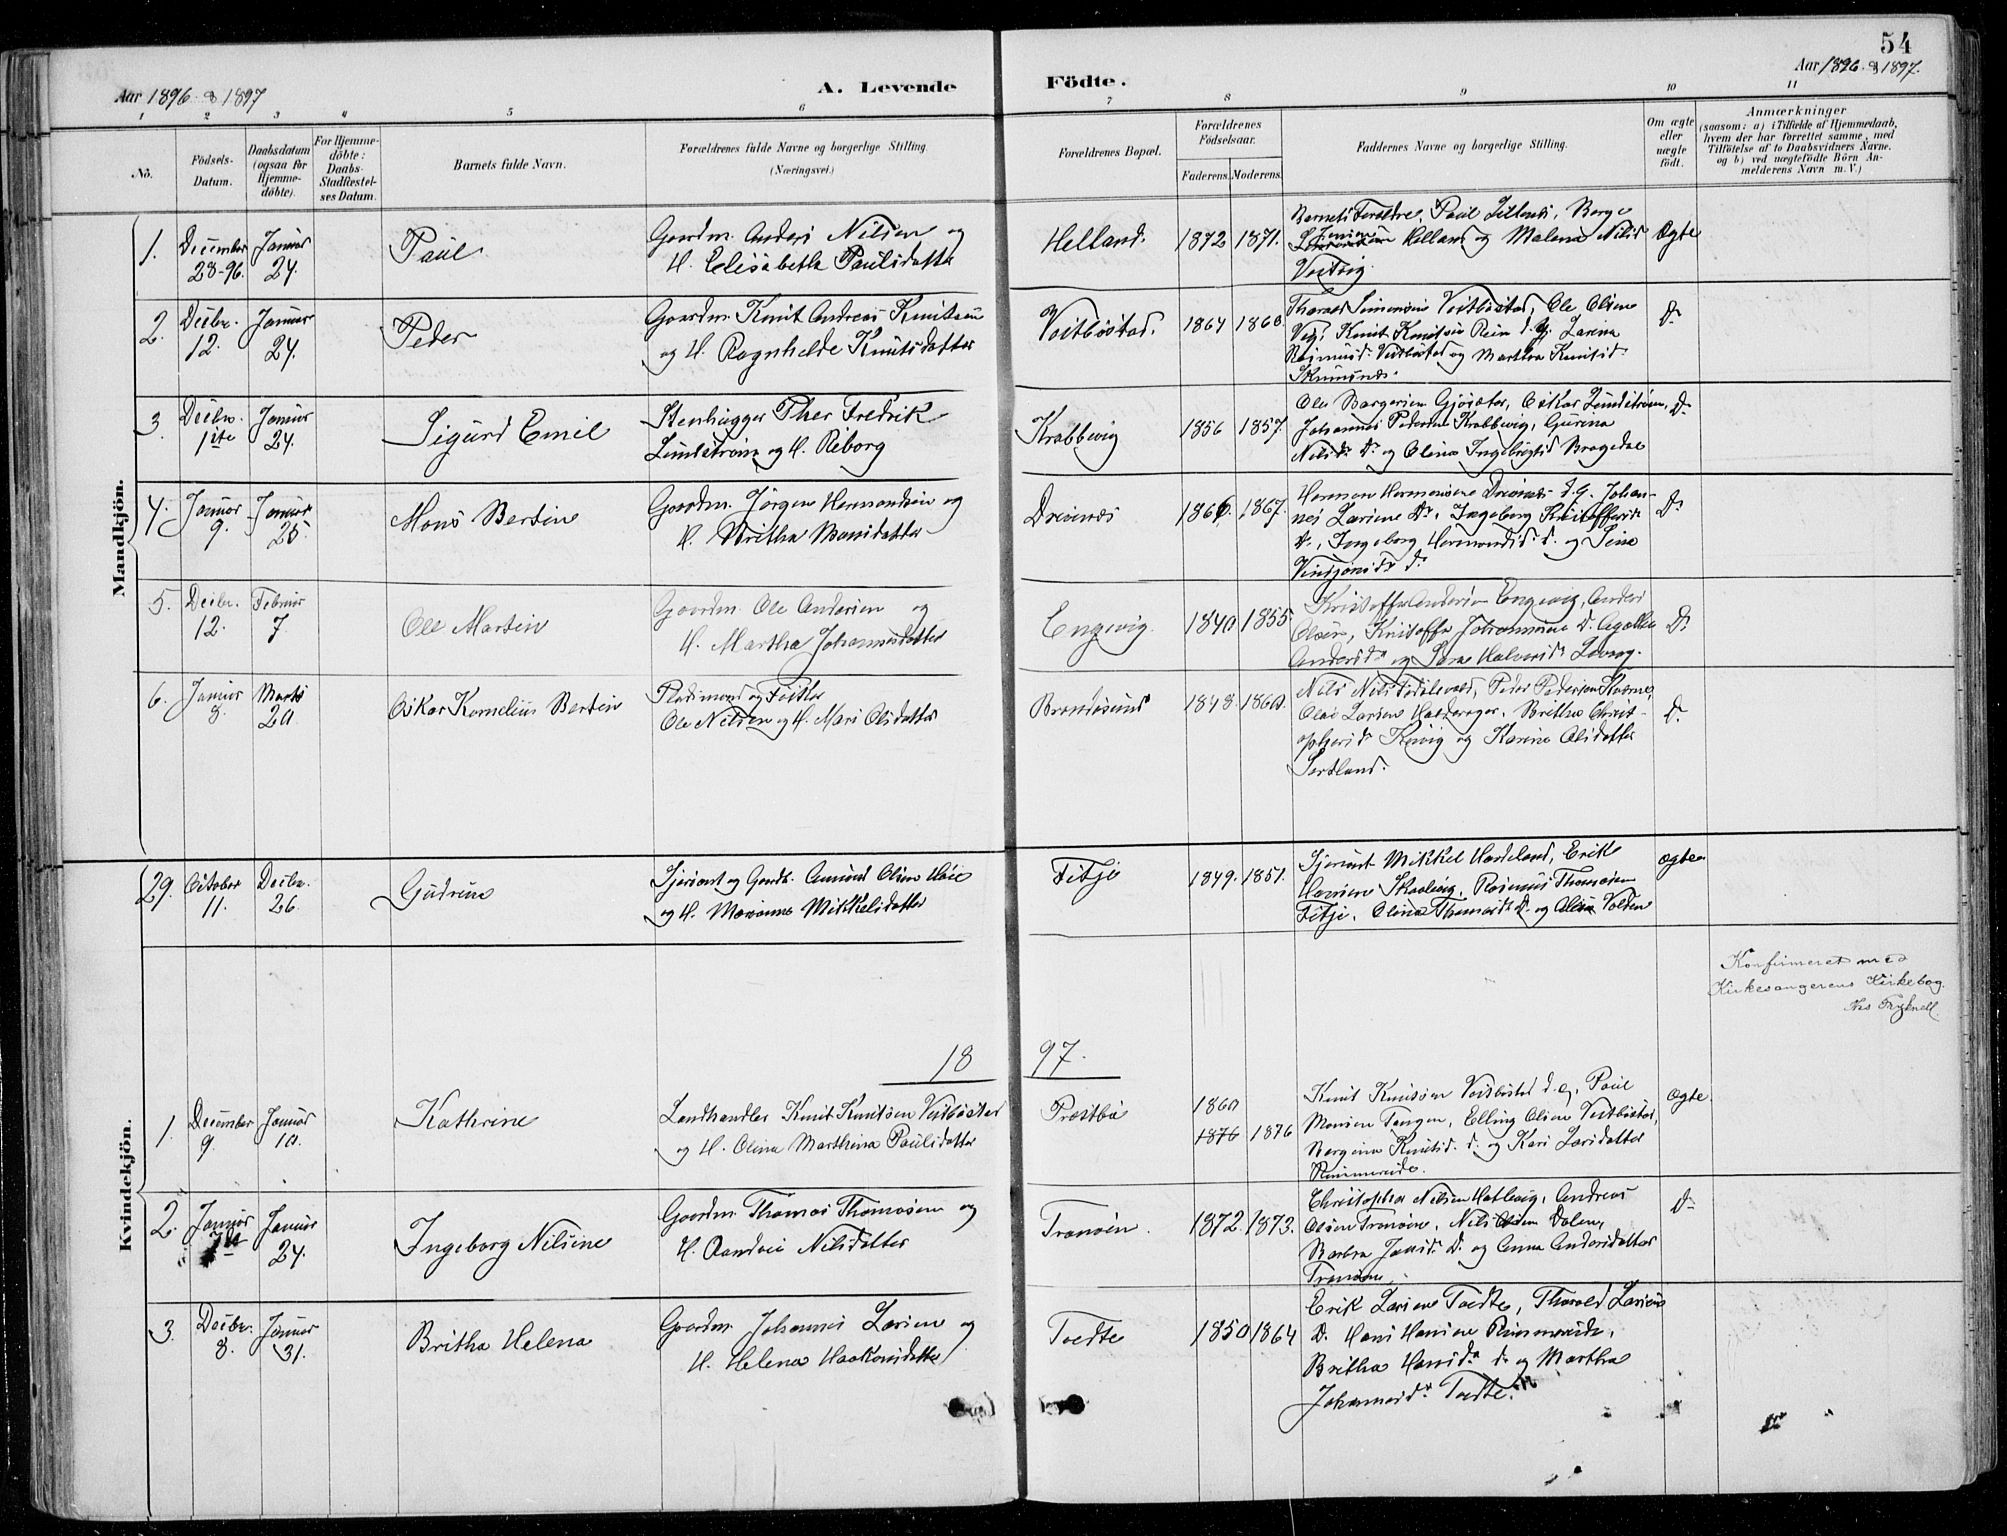 54
Aar 1896 & 1897
A. Levende
Födte.
Aar 1896 & 1897.
1 2 3 4 5 6 7 8 9 10 11
No.
Födsels-
Datum.
Daabsdatum
(ogsaa for
Hjemme-
döbte).
For Hjemme-
döbte:
Daabs-
Stadfæstel-
ses Datum.
Barnets fulde Navn.
Forældrenes fulde Navne og borgerlige Stilling.
(Næringsvei.)
Forældrenes Bopæl.
Forældrenes
Födselsaar.
Faderens. Moderens.
Faddernes Navne og borgerlige Stilling.
Om ægte
eller
uægte
födt.
Anmærkninger
(saasom: a) i Tilfælde af Hjemmedaab,
hvem der har forrettet samme, med
Tilföielse af to Daabsvidners Navne.
og b) ved uægtefödte Börn An-
melderens Navn m. V.)
Mandkjön.
1. December 28-96. Januar 24. Paul
Gaardm. Anders Nilsen og
H. Elisabeth Paulsdatter
Helland. 1872 1871.
Barnets Forældre, Paul
Helland og Malena Nilsd
Vestvig.
Ægte
2. Decbr. 12. Januar 24. Peder
Gaardm. Knut Andreas Knutsen
og H. Ragnhilde Knutsdatter
Vestbøstad. 1864 1868.
Thorvald Simonsen Vestbøstad, Ole Olsen
Knut Knutsen Rein d.y. Larina
Rasmusd. Vestbøstad og Martha Knutsd.
D.
3. Decbr. 1ste Januar 24. Sigurd Emil
Stenhugger Ther Fredrik
Lundstrøm og H. Riborg
Krabbevig 1856 1857.
Ole Bargersen Gjøsæter, Oskar Lundstrøm,
Johannes Pedersen Krabbevig, Gurina
Nilsd. D. og Olina Ingebrigtsd Bragedal
D.
4. Januar 9. Januar 25. Mons Bertin
Gaardm. Jørgen Hermandsen og
H. Britha Monsdatter
Drivnes 1866. 1867.
Herman Hermansen Drivnes d.y. Johan-
nes Larsen D., Ingeborg Kristoffersd.
D., Ingeborg Hermandsd. d. og Sina
D.
5. Decbr. 12. Februar 7. Ole Martin
Gaardm. Ole Andersen og
H. Martha Johannesdatter
Engevig. 1840 1855.
Kristoffer Andersen Engevig, Anders
Olsen, Kristoffer Johannesen D. Agathe
Andersd. og Sara Halvorsd.
D.
6. Januar 8. Marts 20. Oskar Kornelius Bertin
Pladsmand og
Ole Nilsen og H. Mari Olsdatter
Brandesund 1848. 1860.
Nils Nilsen Peder Pedersen
Olai Larsen Halderager, Britha Christ-
ophersd. og Karina Olsdatter
Sortland.
D.
29. October 11. Decbr. 26. Gudrun
Sjersant og Gaardb. Amund Olsen Høie
og H. Marianna Mikkelsdatter
Fitje 1849. 1851.
Sjersant Mikkel Hardeland, Erik
Hansen Skaalevig, Rasmus Thomasen
Fitje, Olina Thomasd. D. og Olina Volden
ægte
Konfirmeret med
Kirkesangerens Kirkebog.
18 97.
Kvindekjön.
1. December 9. Januar 10. Kathrine
Landhandler Knut Knutsen Vestbøstad
og H. Olina Marthina Paulsdatter
Præstbø 1860 1876 1876
Knut Knutsen Vestbøstad d.e., Paul
Monsen Tangen, Elling Olsen Vestbøstad,
Bargina Knutsd. d. og Kari Larsdatter
Rimmereide.
Ægte
2. Januar Januar 24. Ingeborg Nilsine
Gaardm. Thomas Thomasen og
H. Randvei Nilsdatter
Tranøen. 1872. 1873.
Christopher Nilsen Hatlevig, Andreas
Olsen Tranøen, Nils Olsen Dalen,
Barbra Jansd. D. og Anna Andersdatter
Tranøen.
D.
3. Decbr. 8. Januar 31. Britha Helena
Gaardm. Johannes Larsen og
H. Helena Haakonsdatter
Tvedte 1850 1864
Erik Larsen Tvedte, Tharald Larsen
D. Hans Hansen Rimmereide,
Britha Hansd. d. og Martha
Johannesd. Tvedte.